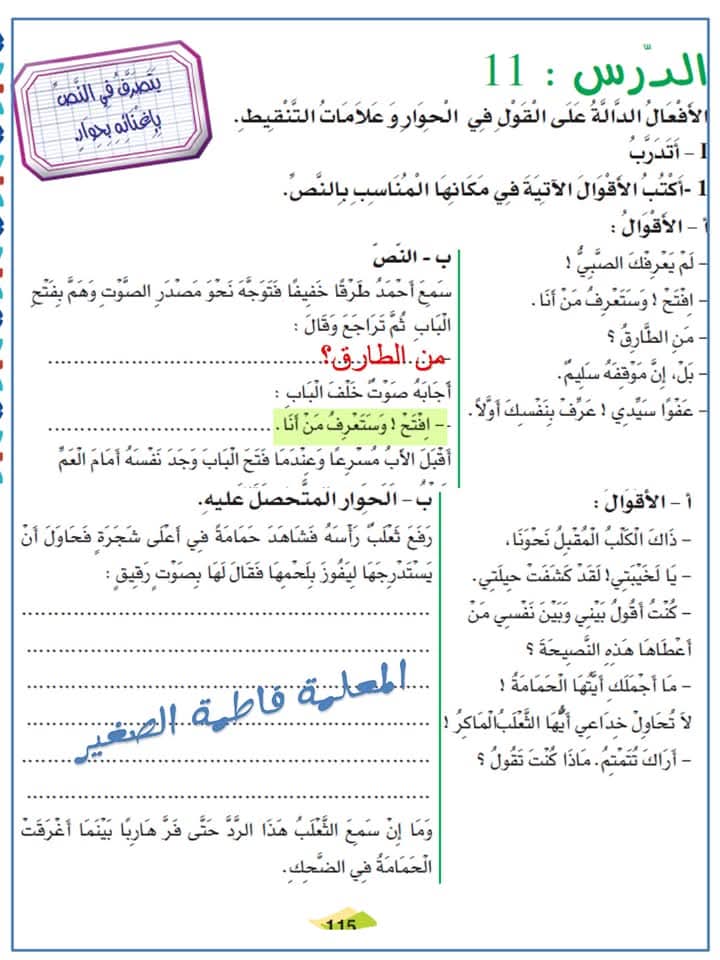 الدّرس : 11
يَتَصَرَّفُ فِي النَّصِّ
بِإِغْنَائِهِ بِحِوَارٍ.
الأَفْعَالُ الدَّالَّةُ عَلَى الْقَوْلِ فِي الْحِوَارِ وَ عَلَامَاتُ التَّنْقِيطِ.
I - أَتَدَرَّبُ
1 -أَكْتُبُ الأَقْوَالَ الآتِيَةَ فِي مَكَانِهَا الْمُنَاسِبِ بِالنَّصِّ.
أ - الأَقْوَالُ :
- لَمْ يَعْرِفْكَ الصَّبِيُّ !
- اِفْتَحْ ! وَسَتَعْرِفُ مَنْ أَنَا.
- مَنِ الطَّارِقُ ؟
- بَلْ، إِنَّ مَوْقِفَهُ سَلِيمٌ.
- عَفْوًا سَيِّدِي ! عَرِّفْ بِنَفْسِكَ أَوَّلاً.
ب - النّصّ
سَمِعَ أَحْمَدُ طَرْقًا خَفِيفًا فَتَوَجَّهَ نَحْوَ مَصْدَرِ الصَّوْتِ وَهَمَّ بِفَتْحِ
الْبَابِ ثُمَّ تَرَاجَعَ وَقَالَ :
- من الطارق؟
أَجَابَهُ صَوْتٌ خَلْفَ الْبَابِ :
- اِفْتَحْ ! وَسَتَعْرِفُ مَنْ أَنَا .
أَقْبَلَ الأَبُ مُسْرِعًا وَعِنْدَمَا فَتَحَ الْبَابَ وَجَدَ نَفْسَهُ أَمَامَ الْعَمِّ
أ - الأقوال :
- ذَاكَ الْكَلْبُ الْمُقْبِلُ نَحْوَنَا،
- يَا لَخَيْبَتِي! لَقَدْ كَشَفَتْ حِيلَتِي.
- كُنْتُ أَقُولُ بَيْنِي وَبَيْنَ نَفْسِي مَنْ
أَعْطَاهَا هَذِهِ النَّصِيحَةَ ؟
- مَا أَجْمَلَكِ أَيَّتُهَا الْحَمَامَةُ !
لاَ تُحَاوِلْ خِدَاعِي أَيُّهَا الثَّعْلَبُ الْمَاكِرُ !
- أَرَاكَ تُتَمْتِمُ. مَاذَا كُنْتَ تَقُولُ ؟
ب - الحوار المتحصل عليه.
رَفَعَ ثَعْلَبٌ رَأْسَهُ فَشَاهَدَ حَمَامَةً فِي أَعْلَى شَجَرَةٍ فَحَاوَلَ أَنْ
يَسْتَدْرِجَهَا لِيَفُوزَ بِلَحْمِهَا فَقَالَ لَهَا بِصَوْتٍ رَقِيقٍ :
المعلمة فاطمة الصغير
وَمَا إِنْ سَمِعَ الثَّعْلَبُ هَذَا الرَّدَّ حَتَّى فَرَّ هَارِبًا بَيْنَمَا أَغْرَقَتْ
الْحَمَامَةُ فِي الضَّحِكِ.
115